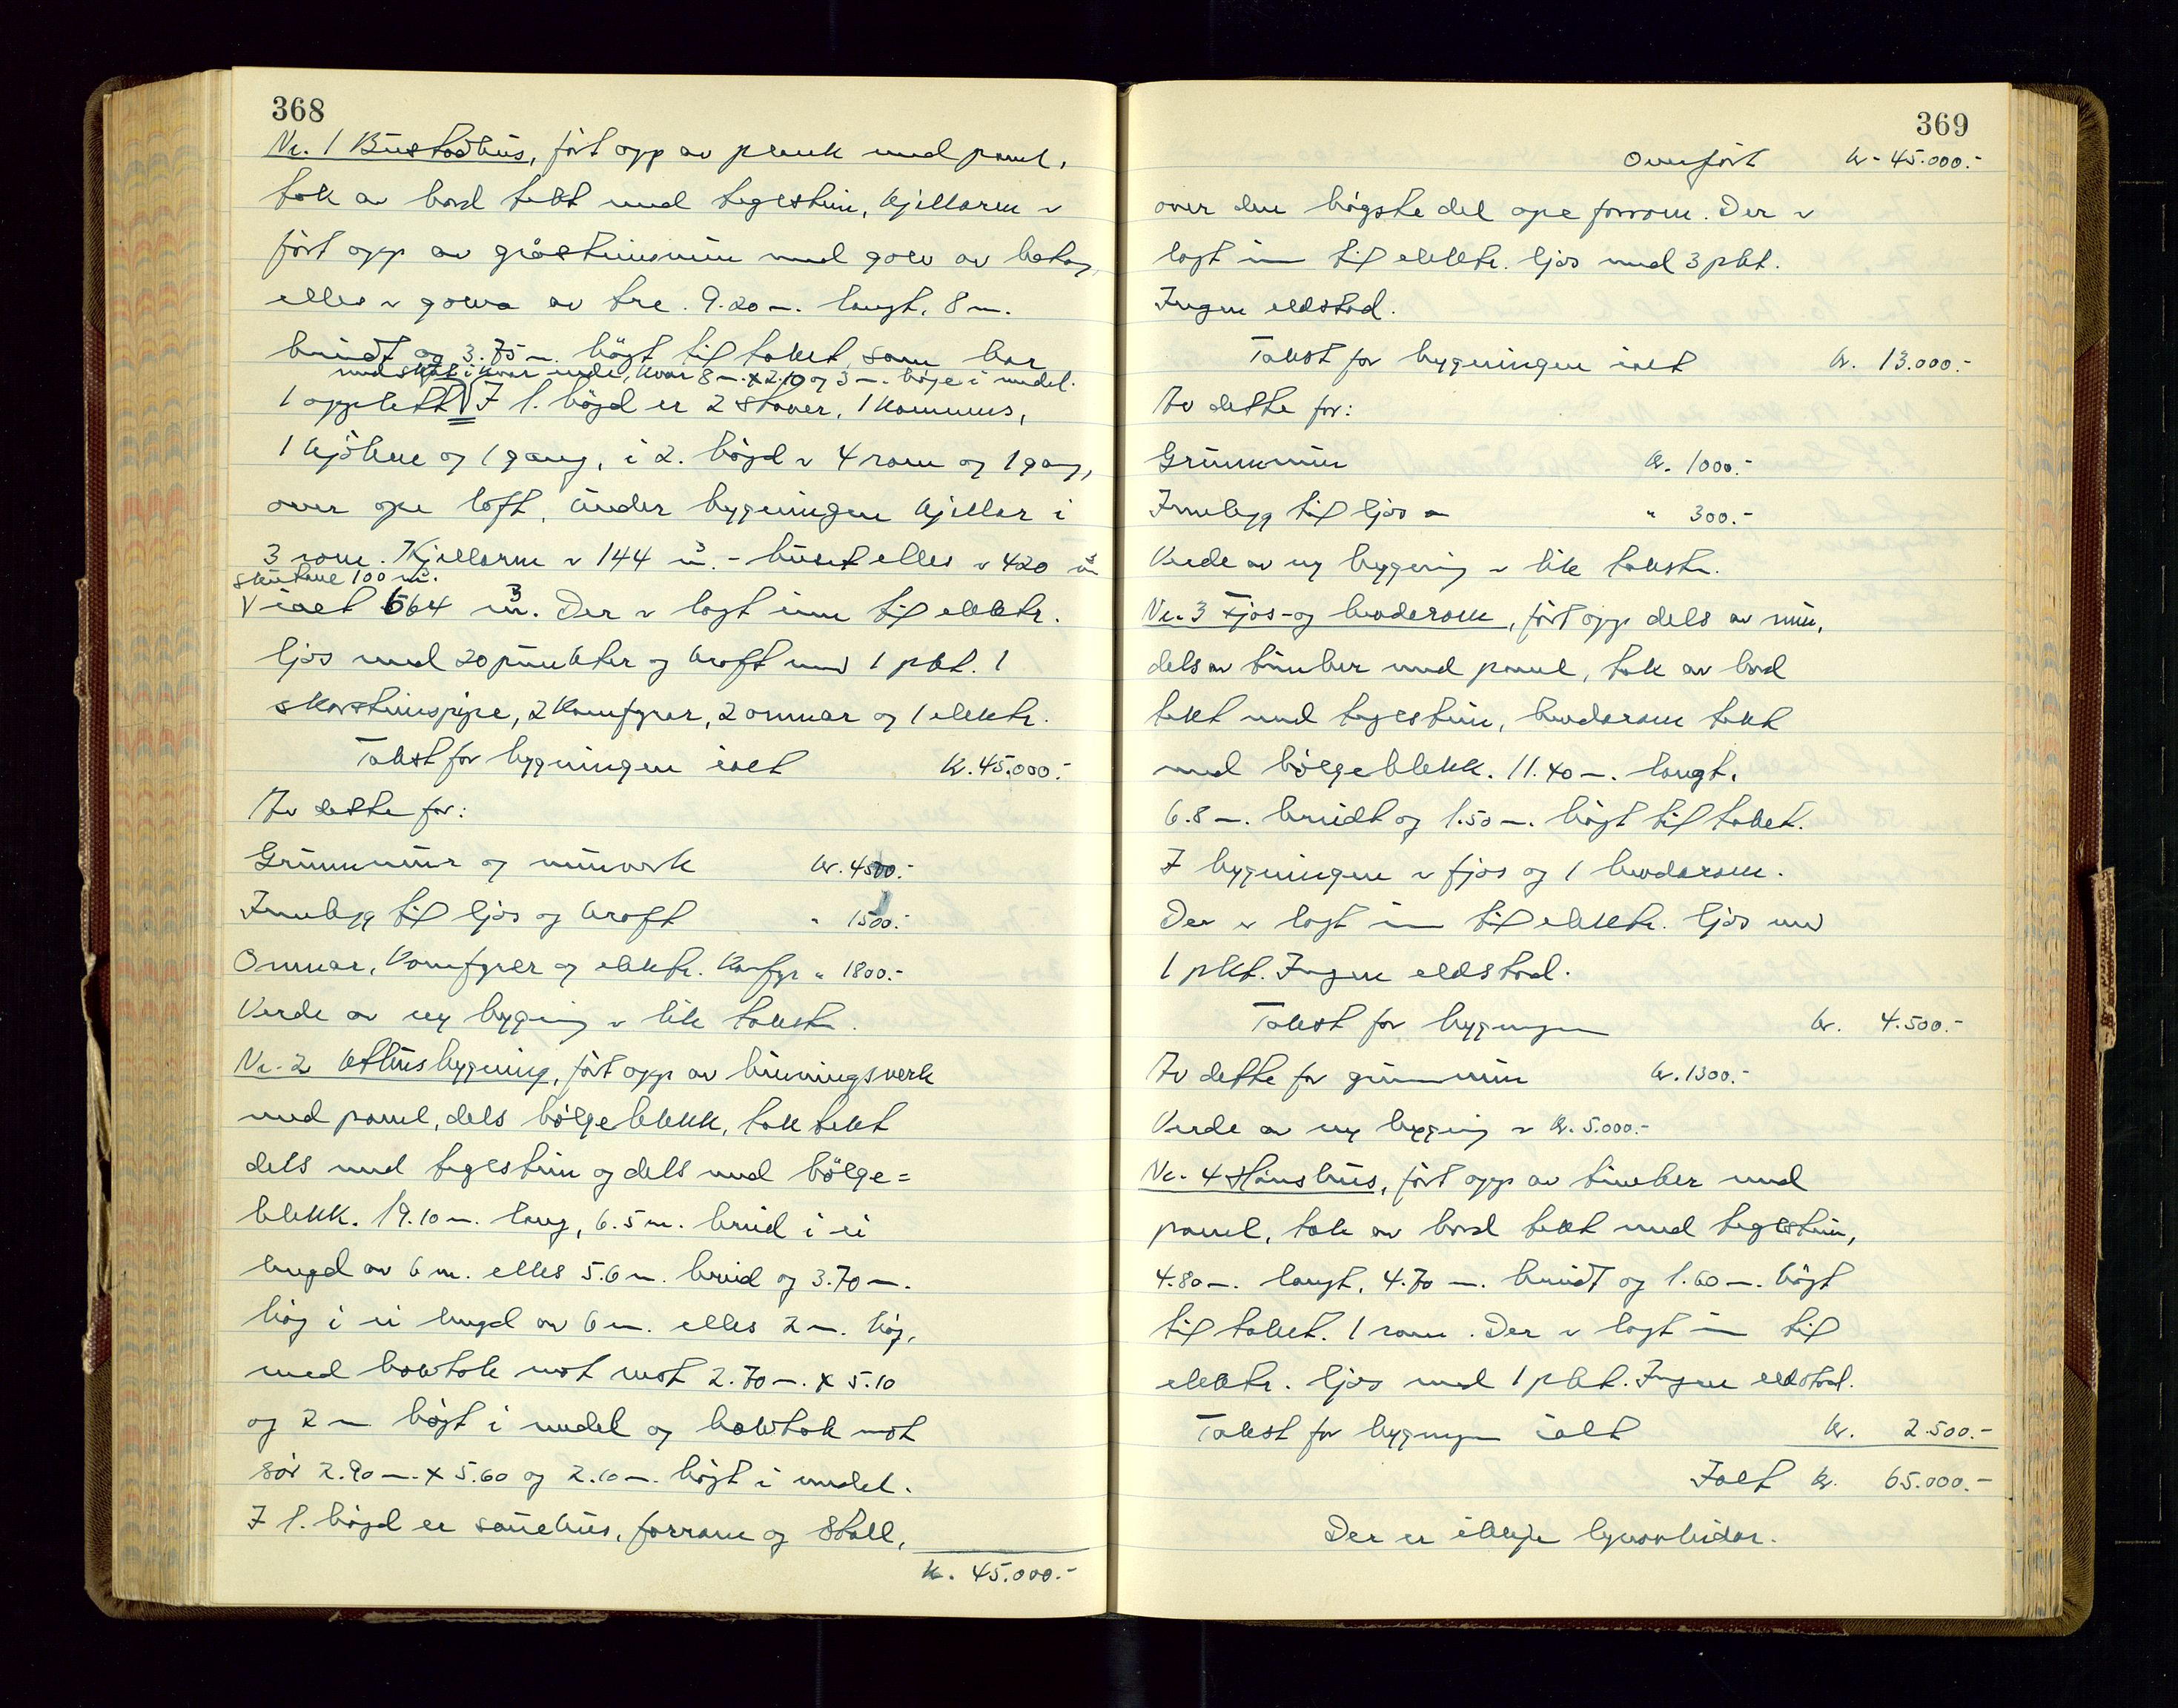 368
Nr. 1 Bustadhus, ført opp av plank med panel,
tak av bord tekt med teglstein, kjellaren er
ført opp av gråsteinsmur med golv av betong,
elles er golva av tre. 9.20 m. langt, 8 m.
breidt og 3.75 m. högt til taket, som har
med skøt i kvar ende, kvar 8 m. x 2.10 og 3 m. høge i medel.
1 opplett. I 1. högd er 2 stover, 1 kammers,
1 kjöken og 1 gang, i 2. högd er 4 rom og 1 gang,
over ope loft, under bygningen kjellar i
3 rom. Kjellaren er 144 m³. - huset elles er 420 m³
skutane 100 m³.
V ialt 664 m³. Der er lagt inn til elektr.
ljos med 20 punkter og kraft med 1 pkt. 1
skorsteinspipe, 2 komfyrer, 2 omnar og 1 elektr.
Takst for bygningen ialt Kr. 45.000.-
Av dette for:
Grunnmur og murverk kr. 4500.-
Innlegg til ljos og kraft " 1500.-
Omnar, komfyrer og elektr. komfyr " 1800.-
Verde av ny bygning er lik taksten.
Nr. 2 Uthusbygning, ført opp av bindingsverk
med panel, dels bölgeblekk, tak tekt
dels med teglstein og dels med bölge=
blekk. 19.10 m. lang, 6.5 m. breid i ei
lengd av 6 m. elles 5.6 m. breid og 3.70 m.
høg i ei lengd av 6 m. elles 2 m. høg,
med halvtak mot vest 2.70 m. x 5.10
og 2 m högt i medel og halvtak mot
sör 2.90 m. x 5.60 og 2.10 m. högt i medel.
I 1. högd er sauehus, forrom og stall,
kr. 45.000.-
369
Overfört kr. 45.000.-
over den högste del ope forrom. Der er
lagt inn til elektr. ljos med 3 pkt.
Ingen eldstad.
Takst for bygningen ialt kr. 13.000.-
Av dette for:
Grunnmur kr. 1000.-
Innlegg til ljos " 300.-
Verde av ny bygning er lik taksten.
Nr. 3 Fjos- og brodarom, fört opp dels av mur,
dels av timber med panel, tak av bord
tekt med teglstein, brodarom tekt
med bölgeblekk. 11.40 m. langt,
6.8 m. breidt og 1.50 m. högt til taket.
I bygningen er fjos og 1 brodarom.
Der er lagt inn til elektr. ljos med
1 pkt. Ingen eldstad.
Takst for bygningen kr. 4.500.-
Av dette for grunnmur kr. 1300.-
Verde av ny bygning er kr. 5.000.-
Nr. 4 Hønshus, fört opp av timber med
panel, tak av bord tekt med teglstein,
4.80 m. langt, 4.70 m. breidt og 1.60 m. högt
til taket. 1 rom. Der er lagt inn til
elektr. ljos med 1 pkt. Ingen eldstad.
Takst for bygningen ialt kr. 2.500.-
Ialt kr. 65.000.-
Der er ikkje lynavleidar.